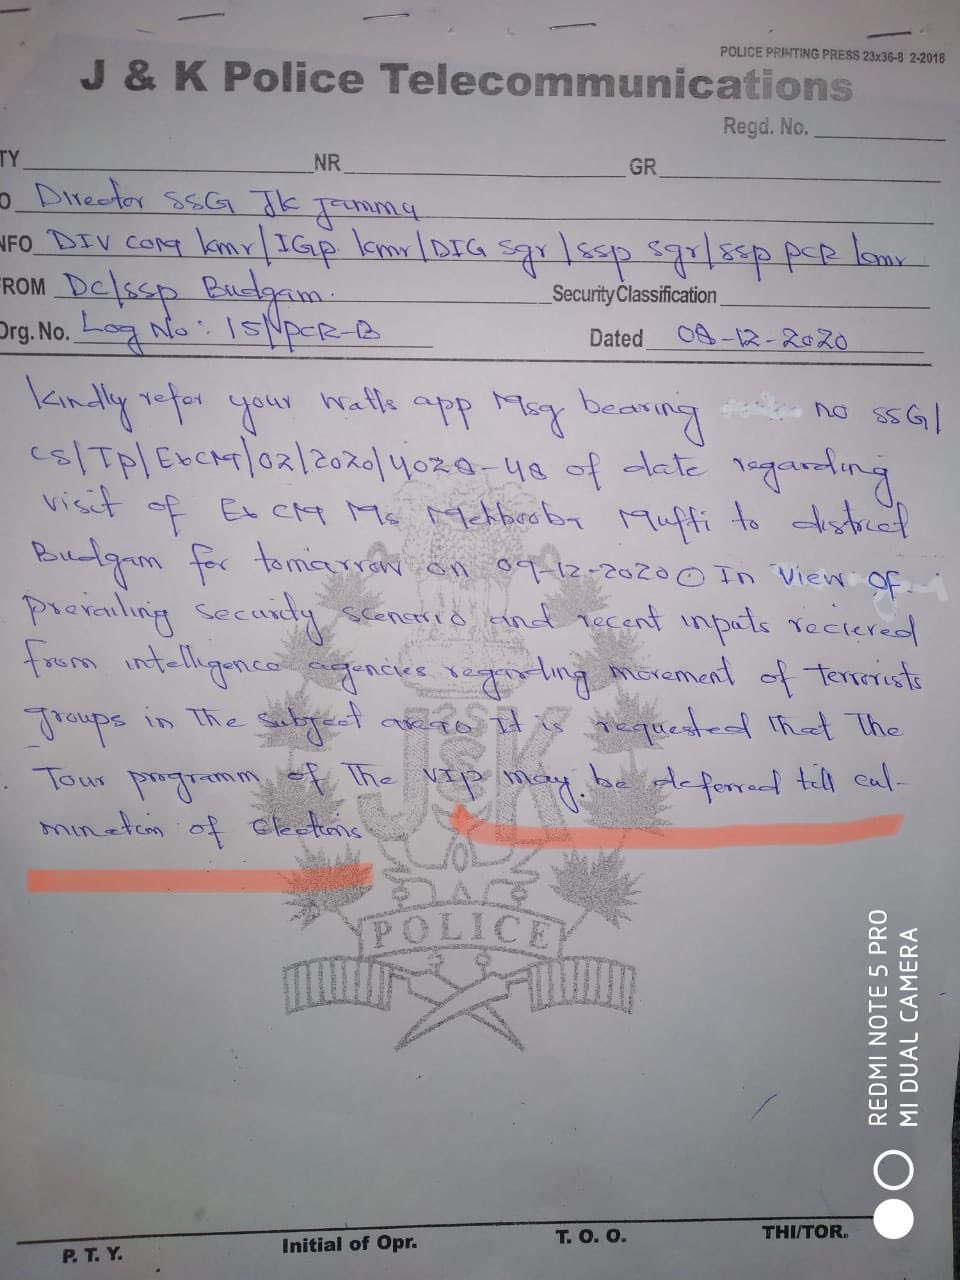 POLICE PRINTING PRESS 23x36-8 2-2018
J & K Police Telecommunications
Regd. No.
TY NR GR
O Director SSG Jk Jammu
NFO DIV com kmr/IGp kmr/DIG sgr/ssp sgr/ssp PCR kmr
FROM DC/ssp Budgam. Security Classification
Org. No. Log No: 151/PCR-B Dated 08-12-2020
kindly refer your watts app Msg bearing no SSG/
CS/TP/ExCM/02/2020/4028-48 of date regarding
visit of Ex CM Ms Mehbooba Muffi to district
Budgam for tomarrow on 09-12-2020 ⊙ In view of
prevailing security scenario and recent inputs recieved
from intelligence agencies regarding movement of terrorists
groups in the subject area ⊙ It is requested that the
Tour programm of the VIP may be deferred till cul-
mination of Elections
J&K
POLICE
REDMI NOTE 5 PRO
MI DUAL CAMERA
P. T. Y. Initial of Opr. T. O. O. THI/TOR.